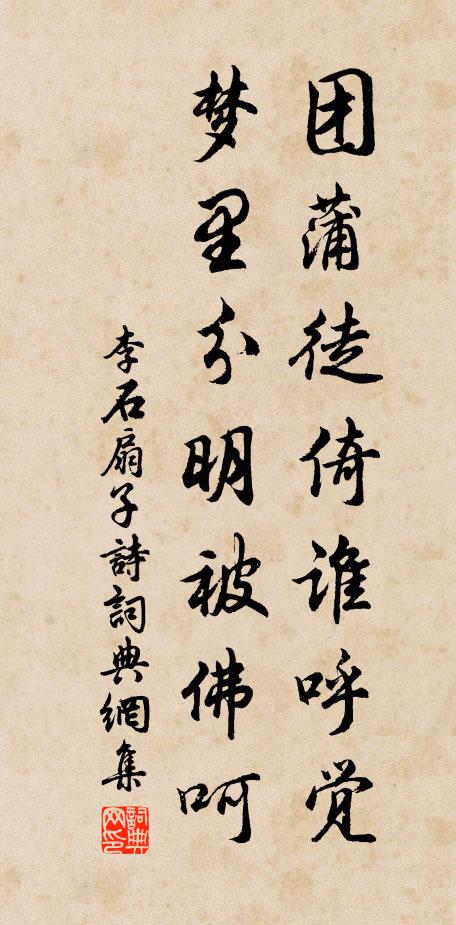 团蒲徒倚谁呼觉
梦里分明被佛呵
李石扇子詩詞典網集
詞典网印